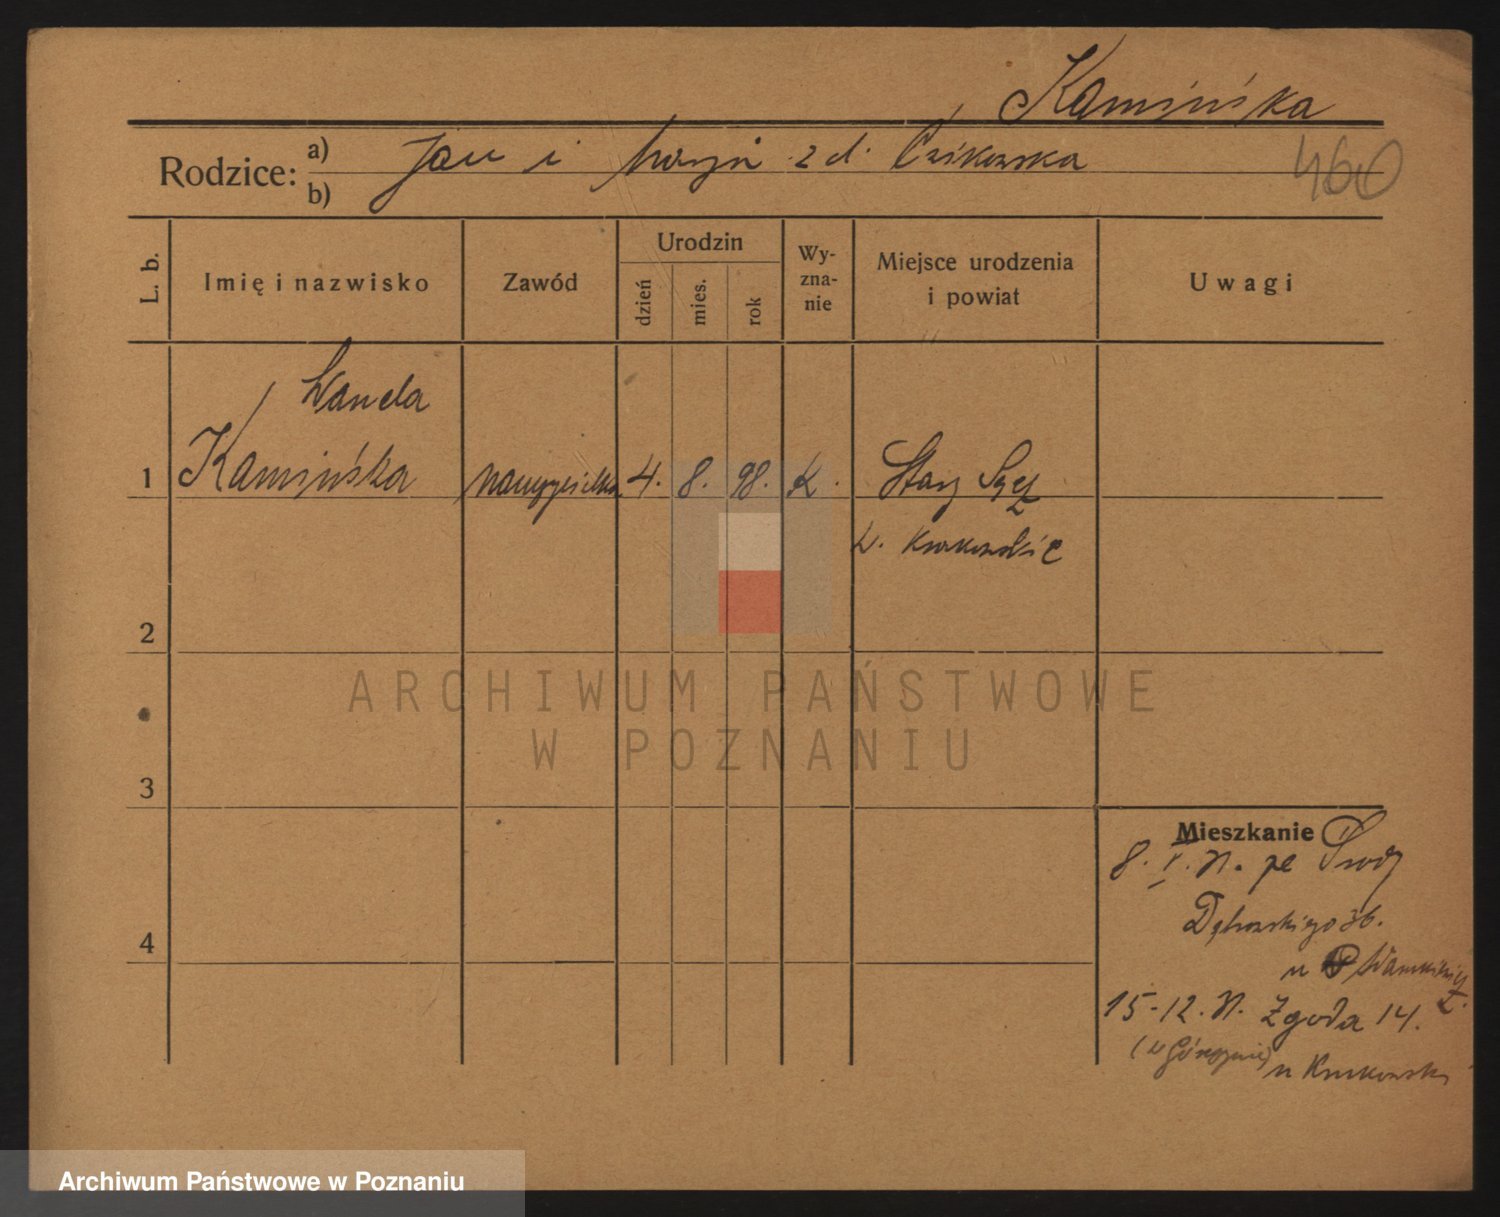 Kamińska
Rodzice: a) Jan i Marja z d. Czikowska
b)
460
L. b.
Imię i nazwisko
Zawód
Urodzin
dzień
mies.
rok
Wy-
zna-
nie
Miejsce urodzenia
i powiat
Uwagi
Wanda
1 Kamińska nauczycielka 4. 8. 98. K. Stary Sącz
w. Krakowskie
2
3
4
ARCHIWUM PAŃSTWOWE
W POZNANIU
Mieszkanie
8. V. 31. pe Środy
Dąbrowskiego 36.
u
15-12. 31. Zgoda 14.
u Krukowski
Archiwum Państwowe w Poznaniu